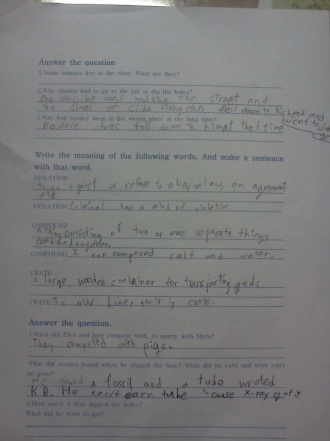 Answer the question
1.Some animals live at the river. What are they?
2.Why stanley had to go to the jail or dig the holes?
One day, he was walking the street and
the shoes of Clide fell down to his head and
went to
3.Why had stanley been in the wrong place at the
Because shoes fell down to him at that time
Write the meaning of the following words. And make a sentence
with that word.
VIOLATION
to go against or refuse to obey a law, an agreement
etc
VIOLATION Criminal has a kind of
COMPOUND
a thing consisting of two or more separate things
combined together.
COMPOUND I can compound salt and water.
CRATE
a large wooden container for transporting goods
CRATE In our house there is crate.
Answer the question.
1.What did Elya and Igor compete with, to marry with Myra?
They competed with pigs.
What did stanley found when he digged the hole? What did he earn and who can't
he earn?
He found a fossil and a tube wroted
K B. He can't earn tube cause x-ray got it
2.How much X-Ray digged the holes?
What did he want to get?